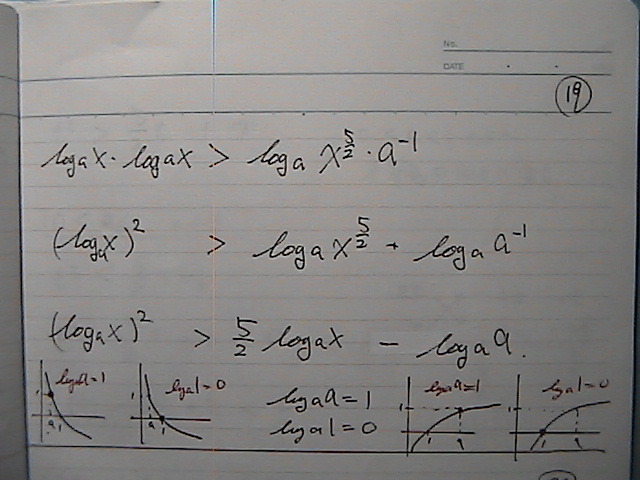 No.
DATE
19
logₐx · logₐx > logₐ x^(5/2) · a⁻¹
(logₐx)² > logₐ x^(5/2) + logₐ a⁻¹
(logₐx)² > 5/2 logₐx − logₐ a.
logₐa = 1 logₐ1 = 0 logₐa = 1 logₐa = 1 logₐ1 = 0
logₐ1 = 0
1 a 1 1 a 1 1 1 a 1 1 a